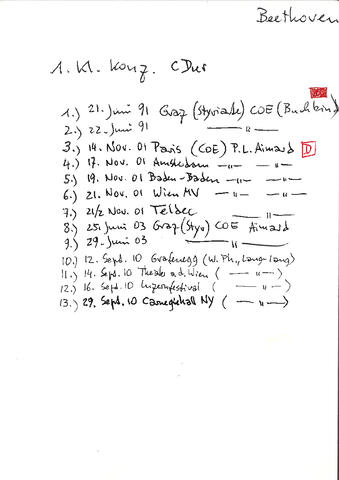 Beethoven
1. Kl. Konz. C Dur
1.) 21. Juni 91 Graz (Styriarte) COE (Buchbind
2.) 22. Juni 91 —— " ——
3.) 14. Nov. 01 Paris (COE) P.L. Aimard D
4.) 17. Nov. 01 Amsterdam — " — — " —
5.) 19. Nov. 01 Baden-Baden — " — — " —
6.) 21. Nov. 01 Wien MV — " — — " —
7.) 21/2 Nov. 01 Teldec —— " ——
8.) 25. Juni 03 Graz (Sty.) COE Aimard
9.) 29. Juni 03 —— " ——
10.) 12. Sept. 10 Grafenegg (W. Ph., Lang-Lang)
11.) 14. Sept. 10 Theater a.d. Wien ( — " — )
12.) 16. Sept. 10 Luzernfestival ( — " — )
13.) 29. Sept. 10 Carnegiehall NY ( — " — )